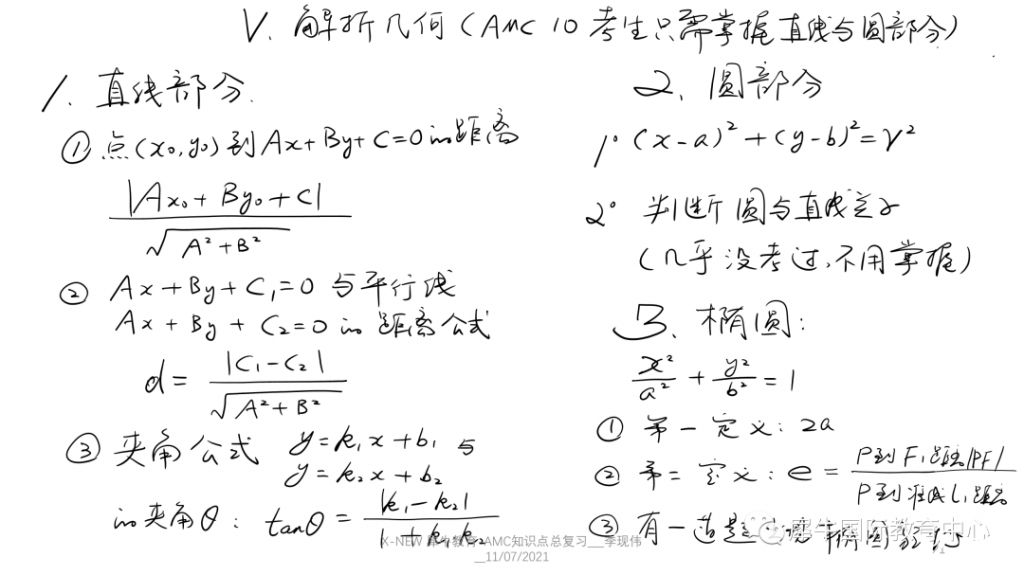 V. 解析几何（AMC 10 考生只需掌握直线与圆部分）
1. 直线部分.
① 点(x₀,y₀)到Ax+By+C=0的距离
|Ax₀+By₀+C|
√A²+B²
② Ax+By+C₁=0与平行线
Ax+By+C₂=0的距离公式
d= |C₁-C₂|
√A²+B²
③ 夹角公式 y=k₁x+b₁ 与
y=k₂x+b₂
的夹角θ: tanθ= |k₁-k₂|
1+k₁k₂
2、圆部分
1° (x-a)²+(y-b)²=r²
2° 判断圆与直线
(几乎没考过,不用掌握)
3、椭圆:
x²/a² + y²/b² = 1
① 第一定义: 2a
② 第二定义: e= P到F₁距离|PF|
P到准线l₁距离
③ 有一道题 椭圆
犀牛国际教育中心
X-NEW 犀牛教育 AMC知识点总复习__李现伟
__11/07/2021